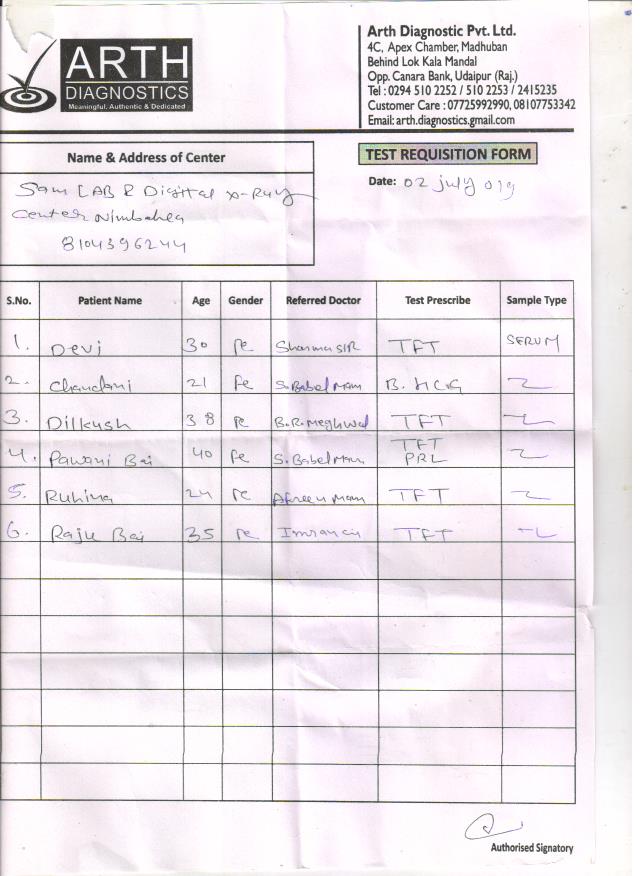 ARTH
DIAGNOSTICS
Meaningful, Authentic & Dedicated
Arth Diagnostic Pvt. Ltd.
4C, Apex Chamber, Madhuban
Behind Lok Kala Mandal
Opp. Canara Bank, Udaipur (Raj.)
Tel : 0294 510 2252 / 510 2253 / 2415235
Customer Care : 07725992990, 08107753342
Email: arth.diagnostics.gmail.com
Name & Address of Center
TEST REQUISITION FORM
Date: 02 July 019
Sam LAB & Digital X-Ray
Center Nimbahea
8104396244
S.No. Patient Name Age Gender Referred Doctor Test Prescribe Sample Type
1. Devi 30 Fe Sharma SIR TFT SERUM
2. Chandani 21 Fe S. Babel Mam B. HCG
3. Dilkush 38 Fe B.R. Meghwal TFT
4. Pawani Bai 40 Fe S. Babel Mam TFT PRL
5. Ruhina 24 Fe Afreen Mam TFT
6. Raju Bai 35 Fe Imran TFT
Authorised Signatory